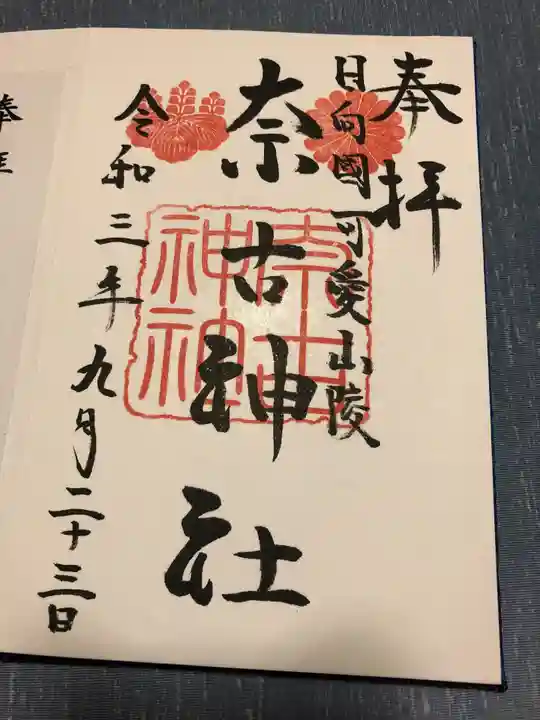 奉拝
日向國可愛山陵
奈古神社
令和三年九月二十三日
奈古
神社
奉拝